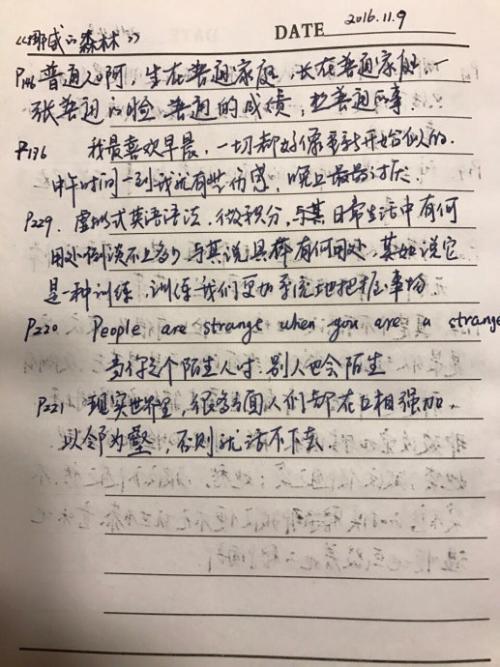 《挪威的森林》 DATE 2016.11.9
P146 普通人啊，生在普通家庭，长在普通家庭，一
张普通的脸 普通的成绩，普通的事
P136 我最喜欢早晨，一切都好像重新开始似的．
中午时间一到我就有些伤感，晚上最最讨厌．
P229．虚拟式英语语法，微积分，与其日常生活中有何
用处倒谈不上多少，与其说具体有何用处，莫如说它
是一种训练，训练我们更加系统地把握事物
P220 People are strange when you are a strange
当你是个陌生人时 别人也会陌生
P221 现实世界里，很多方面人们都在互相强加，
以邻为壑，否则就活不下去